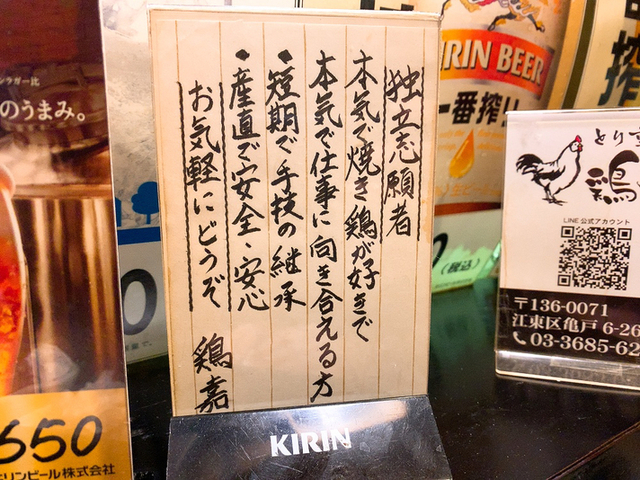 独立志願者
本気で焼き鶏が好きで
本気で仕事に向き合える方
・短期で手技の継承
・産直で安全、安心
お気軽にどうぞ
鶏嘉
KIRIN
KIRIN BEER
一番搾り
のうまみ。
650
キリンビール株式会社
0
(税込)
とり
鶏
LINE公式アカウント
〒136-0071
江東区亀戸 6-26
03-3685-62
搾